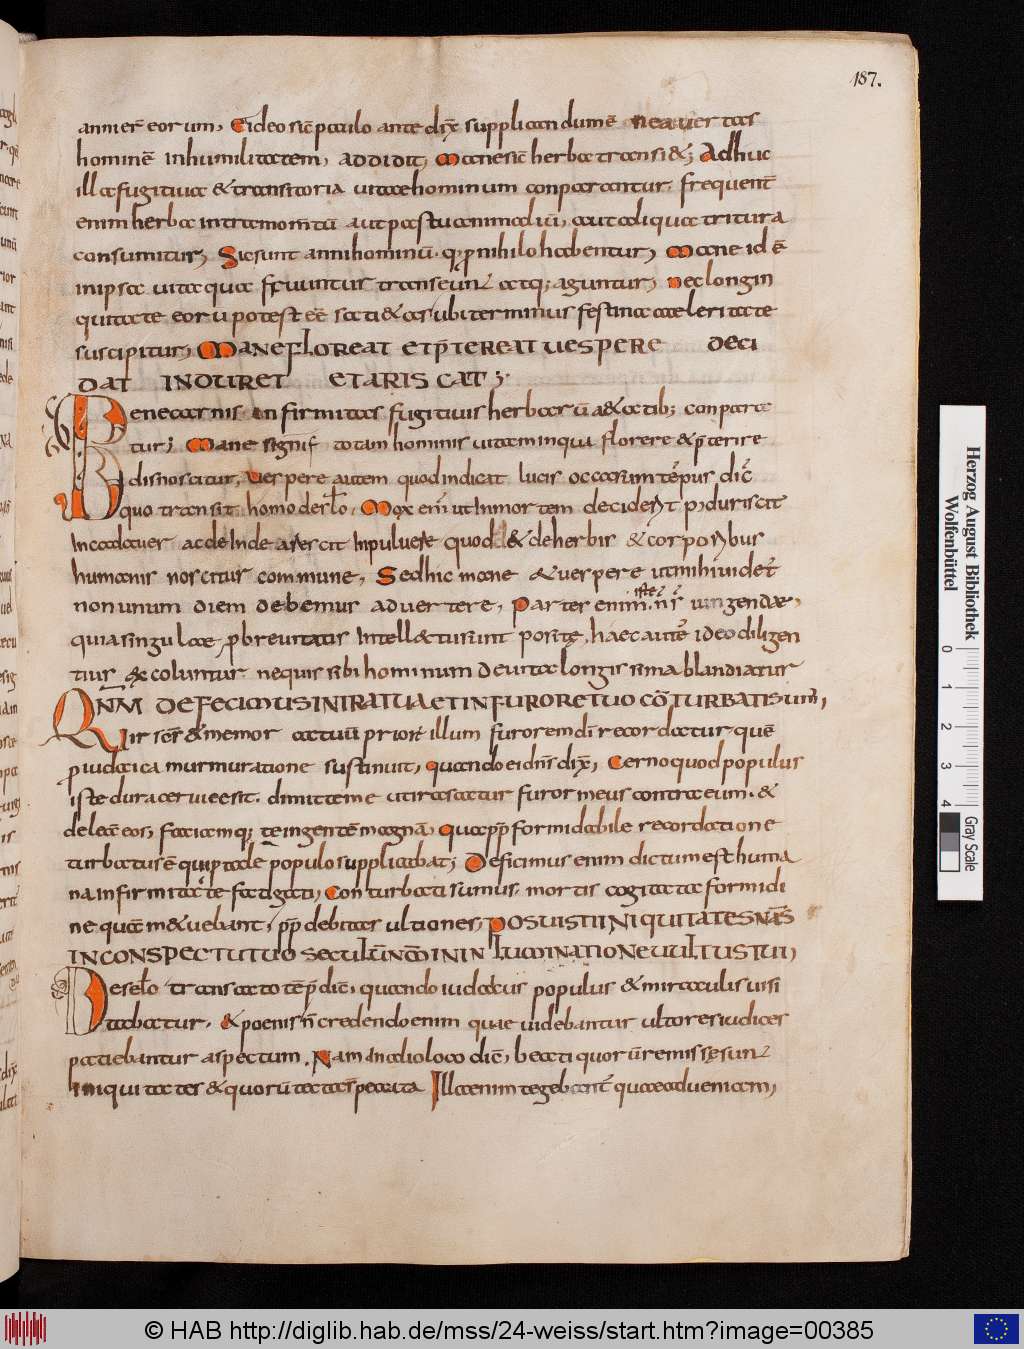 187.
anni er̄ eorum, Et ideo sic̄ paulo ante dix̄ supplicandum ē ne auertas
hominē in humilitatem, addidit, Mane sic̄ herba transi&; Adhuc
illa fugitiua & transitoria uitae hominum conparantur. frequent̄
enim herba intra momn̄tū aut pastu ammodū, aut aliqua tritura
consumitur, Sic sunt anni hominū. q; p nihilo habentur, Mane id ē
in ipsa uita qua fruuntur transeun atq; aguntur, nec longin
quitate eorū potest eē satia& as ubi terminus festina celeritate
suscipitur, MANE FLOREAT ET P̄TEREAT UESPERE DECI
DAT INDURET ET ARISCAT;
Bene carnis infirmitas fugitiuis herbarū a&atib; conpara
tur; Mane signif totam hominis uitam in qua florere & p̄terire
disnoscitur, Uespere autem quod indicat lucis occasum tēpus dic̄
quo transit homo de sc̄lo, Mox eni ut in mortem decider&t p, durescit
In cadauer ac deinde arescit In puluere quod & de herbis & corporibus
humanis noscitur commune, Sed hic mane & uespere ut mihi uidet̄
non unum diem debemus aduertere, Pariter enim iste n̄r̄ iungendae,
quia singulae p breuitatis Intellectu sunt positę, haec autē ideo diligen
tius excoluntur nequis sibi hominum de uita longissima blandiatur
QNM DEFECIMUS IN IRA TUA ET IN FURORE TUO CŌTURBATI SUM,
Vir sc̄s & memor actuū prior illum furorem dī recordatur quē
p iudaica murmuratione sustinuit, quando ei dn̄s dix̄, Cerno quod populus
iste durae ceruicis sit. dimitte me ut irascatur furor meus contra eum. &
deleā eos, faciamq; te in gentē magnā, quapp formidabile recordatione
turbatus ē qui p tale populo supplicabat; Deficimus enim dictum est huma
na infirmitate fatigati, Conturbati sumus. mortis cogitatae formidi
ne quā m&uebant, pp debitas ultiones, POSUISTI INIQUITATES NR̄AS
IN CONSPECTU TUO SECULŪ NR̄M IN INLUMINATIONE UULTUS TUI,
De sc̄lo transacto tēp dic̄, quando iudaicus populus & miraculis uisi
tabatur. & poenis n̄ credendo enim quae uidebantur ultores iudices
patiebantur aspectum. Nam In alio loco dic̄, beati quorū remissę sunt
Iniquitates & quorū tacta sunt peccata Illa enim tegebant̄ quae aduenam,
Herzog August Bibliothek
Wolfenbüttel
0 1 2 3 4
Gray Scale
© HAB http://diglib.hab.de/mss/24-weiss/start.htm?image=00385